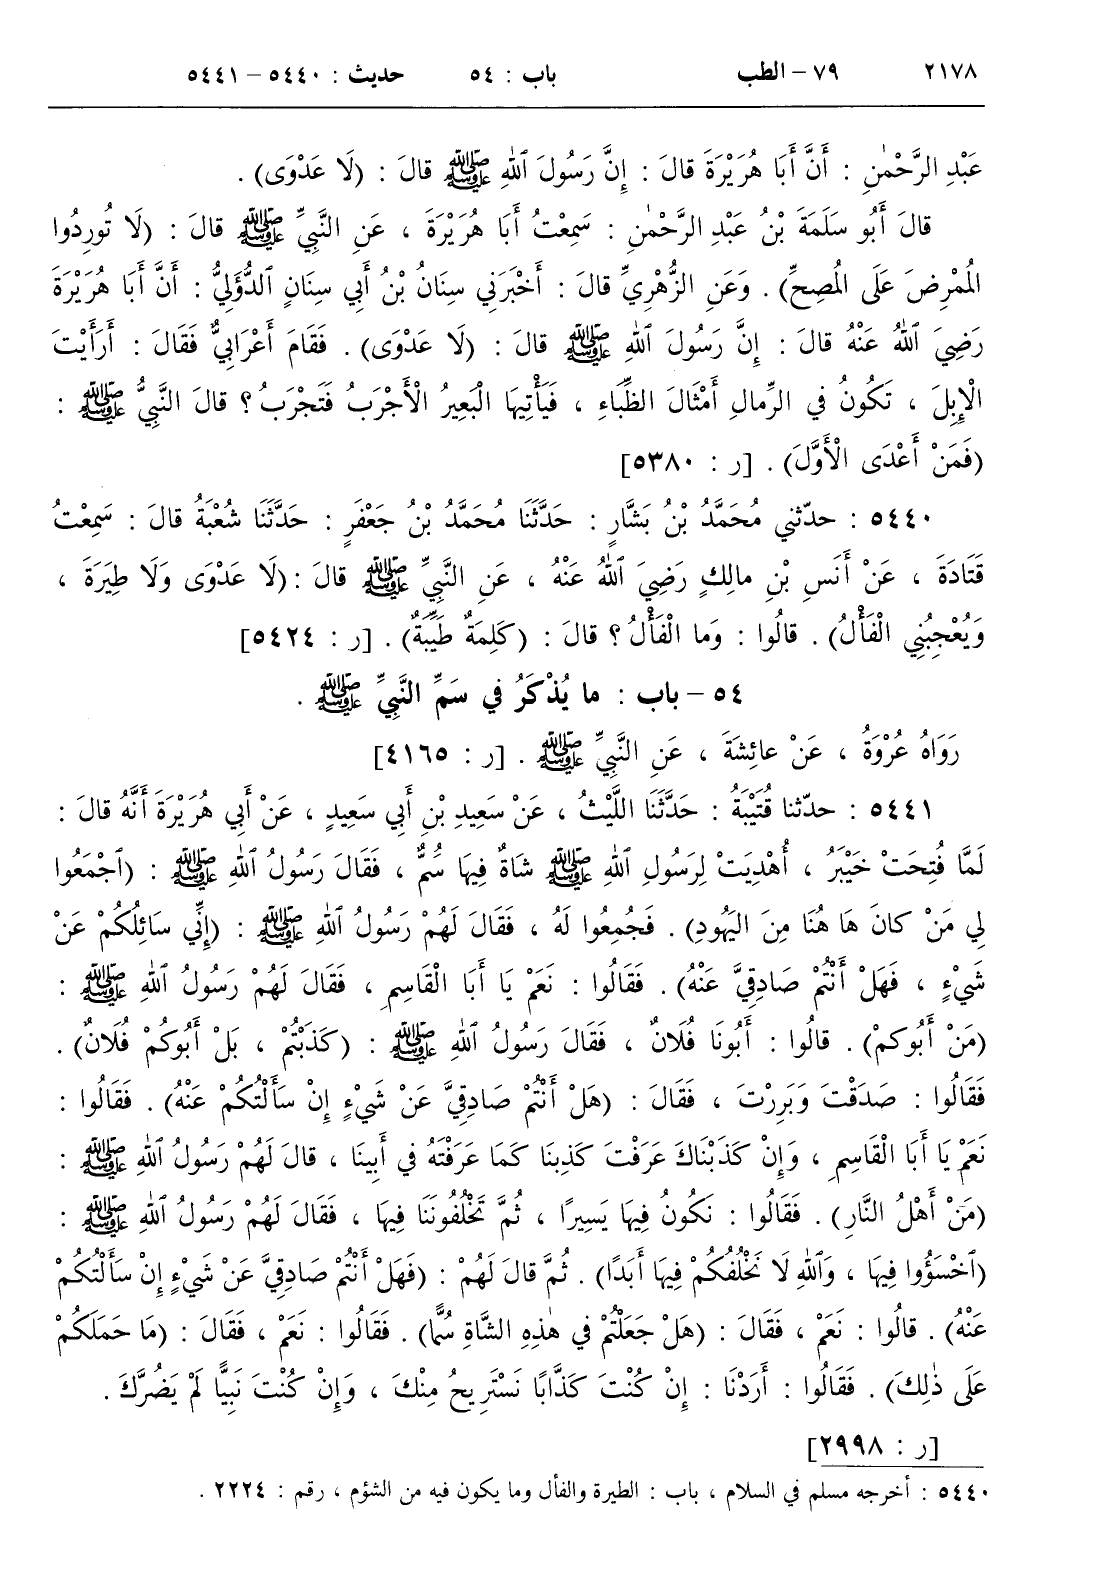 ٢١٧٨ ٧٩ – الطب باب : ٥٤ حديث : ٥٤٤٠ – ٥٤٤١
عَبْدِ الرَّحْمٰنِ : أَنَّ أَبَا هُرَيْرَةَ قالَ : إِنَّ رَسُولَ ٱللهِ ﷺ قالَ : (لَا عَدْوَى) .
قالَ أَبُو سَلَمَةَ بْنُ عَبْدِ الرَّحْمٰنِ : سَمِعْتُ أَبَا هُرَيْرَةَ ، عَنِ النَّبِيِّ ﷺ قالَ : (لَا تُورِدُوا
المُمْرِضَ عَلَى المُصِحِّ) . وَعَنِ الزُّهْرِيِّ قالَ : أَخْبَرَنِي سِنَانُ بْنُ أَبِي سِنَانٍ ٱلدُّؤَلِيُّ : أَنَّ أَبَا هُرَيْرَةَ
رَضِيَ ٱللهُ عَنْهُ قالَ : إِنَّ رَسُولَ ٱللهِ ﷺ قالَ : (لَا عَدْوَى) . فَقَامَ أَعْرَابِيٌّ فَقَالَ : أَرَأَيْتَ
الْإِبِلَ ، تَكُونُ فِي الرِّمالِ أَمْثَالَ الظِّبَاءِ ، فَيَأْتِيهَا الْبَعِيرُ الْأَجْرَبُ فَتَجْرَبُ ؟ قالَ النَّبِيُّ ﷺ :
(فَمَنْ أَعْدَى الْأَوَّلَ) . [ر : ٥٣٨٠]
٥٤٤٠ : حدّثني مُحَمَّدُ بْنُ بَشَّارٍ : حَدَّثَنَا مُحَمَّدُ بْنُ جَعْفَرٍ : حَدَّثَنَا شُعْبَةُ قالَ : سَمِعْتُ
قَتَادَةَ ، عَنْ أَنَسِ بْنِ مالِكٍ رَضِيَ ٱللهُ عَنْهُ ، عَنِ النَّبِيِّ ﷺ قالَ : (لَا عَدْوَى وَلَا طِيَرَةَ ،
وَيُعْجِبُنِي الْفَأْلُ) . قالُوا : وَما الْفَأْلُ ؟ قالَ : (كَلِمَةٌ طَيِّبَةٌ) . [ر : ٥٤٢٤]
٥٤ – باب : ما يُذْكَرُ فِي سَمِّ النَّبِيِّ ﷺ .
رَوَاهُ عُرْوَةُ ، عَنْ عائِشَةَ ، عَنِ النَّبِيِّ ﷺ . [ر : ٤١٦٥]
٥٤٤١ : حدّثنا قُتَيْبَةُ : حَدَّثَنَا اللَّيْثُ ، عَنْ سَعِيدِ بْنِ أَبِي سَعِيدٍ ، عَنْ أَبِي هُرَيْرَةَ أَنَّهُ قالَ :
لَمَّا فُتِحَتْ خَيْبَرُ ، أُهْدِيَتْ لِرَسُولِ ٱللهِ ﷺ شَاةٌ فِيهَا سُمٌّ ، فَقَالَ رَسُولُ ٱللهِ ﷺ : (ٱجْمَعُوا
لِي مَنْ كانَ هَا هُنَا مِنَ الْيَهُودِ) . فَجُمِعُوا لَهُ ، فَقَالَ لَهُمْ رَسُولُ ٱللهِ ﷺ : (إِنِّي سائِلُكُمْ عَنْ
شَيْءٍ ، فَهَلْ أَنْتُمْ صَادِقِيَّ عَنْهُ) . فَقَالُوا : نَعَمْ يَا أَبَا الْقَاسِمِ ، فَقَالَ لَهُمْ رَسُولُ ٱللهِ ﷺ :
(مَنْ أَبُوكمْ) . قالُوا : أَبُونَا فُلَانٌ ، فَقَالَ رَسُولُ ٱللهِ ﷺ : (كَذَبْتُمْ ، بَلْ أَبُوكُمْ فُلَانٌ) .
فَقَالُوا : صَدَقْتَ وَبَرِرْتَ ، فَقَالَ : (هَلْ أَنْتُمْ صَادِقِيَّ عَنْ شَيْءٍ إِنْ سَأَلْتُكُمْ عَنْهُ) . فَقَالُوا :
نَعَمْ يَا أَبَا الْقَاسِمِ ، وَإِنْ كَذَبْنَاكَ عَرَفْتَ كَذِبَنَا كَمَا عَرَفْتَهُ فِي أَبِينَا ، قالَ لَهُمْ رَسُولُ ٱللهِ ﷺ :
(مَنْ أَهْلُ النَّارِ) . فَقَالُوا : نَكُونُ فِيهَا يَسِيرًا ، ثُمَّ تَخْلُفُونَنَا فِيهَا ، فَقَالَ لَهُمْ رَسُولُ ٱللهِ ﷺ :
(ٱخْسَؤُوا فِيهَا ، وَٱللهِ لَا نَخْلُفُكُمْ فِيهَا أَبَدًا) . ثُمَّ قالَ لَهُمْ : (فَهَلْ أَنْتُمْ صَادِقِيَّ عَنْ شَيْءٍ إِنْ سَأَلْتُكُمْ
عَنْهُ) . قالُوا : نَعَمْ ، فَقَالَ : (هَلْ جَعَلْتُمْ فِي هٰذِهِ الشَّاةِ سُمًّا) . فَقَالُوا : نَعَمْ ، فَقَالَ : (مَا حَمَلَكُمْ
عَلَى ذٰلِكَ) . فَقَالُوا : أَرَدْنَا : إِنْ كُنْتَ كَذَّابًا نَسْتَرِيحُ مِنْكَ ، وَإِنْ كُنْتَ نَبِيًّا لَمْ يَضُرَّكَ .
[ر : ٢٩٩٨]
٥٤٤٠ : أخرجه مسلم في السلام ، باب : الطيرة والفأل وما يكون فيه من الشؤم ، رقم : ٢٢٢٤ .